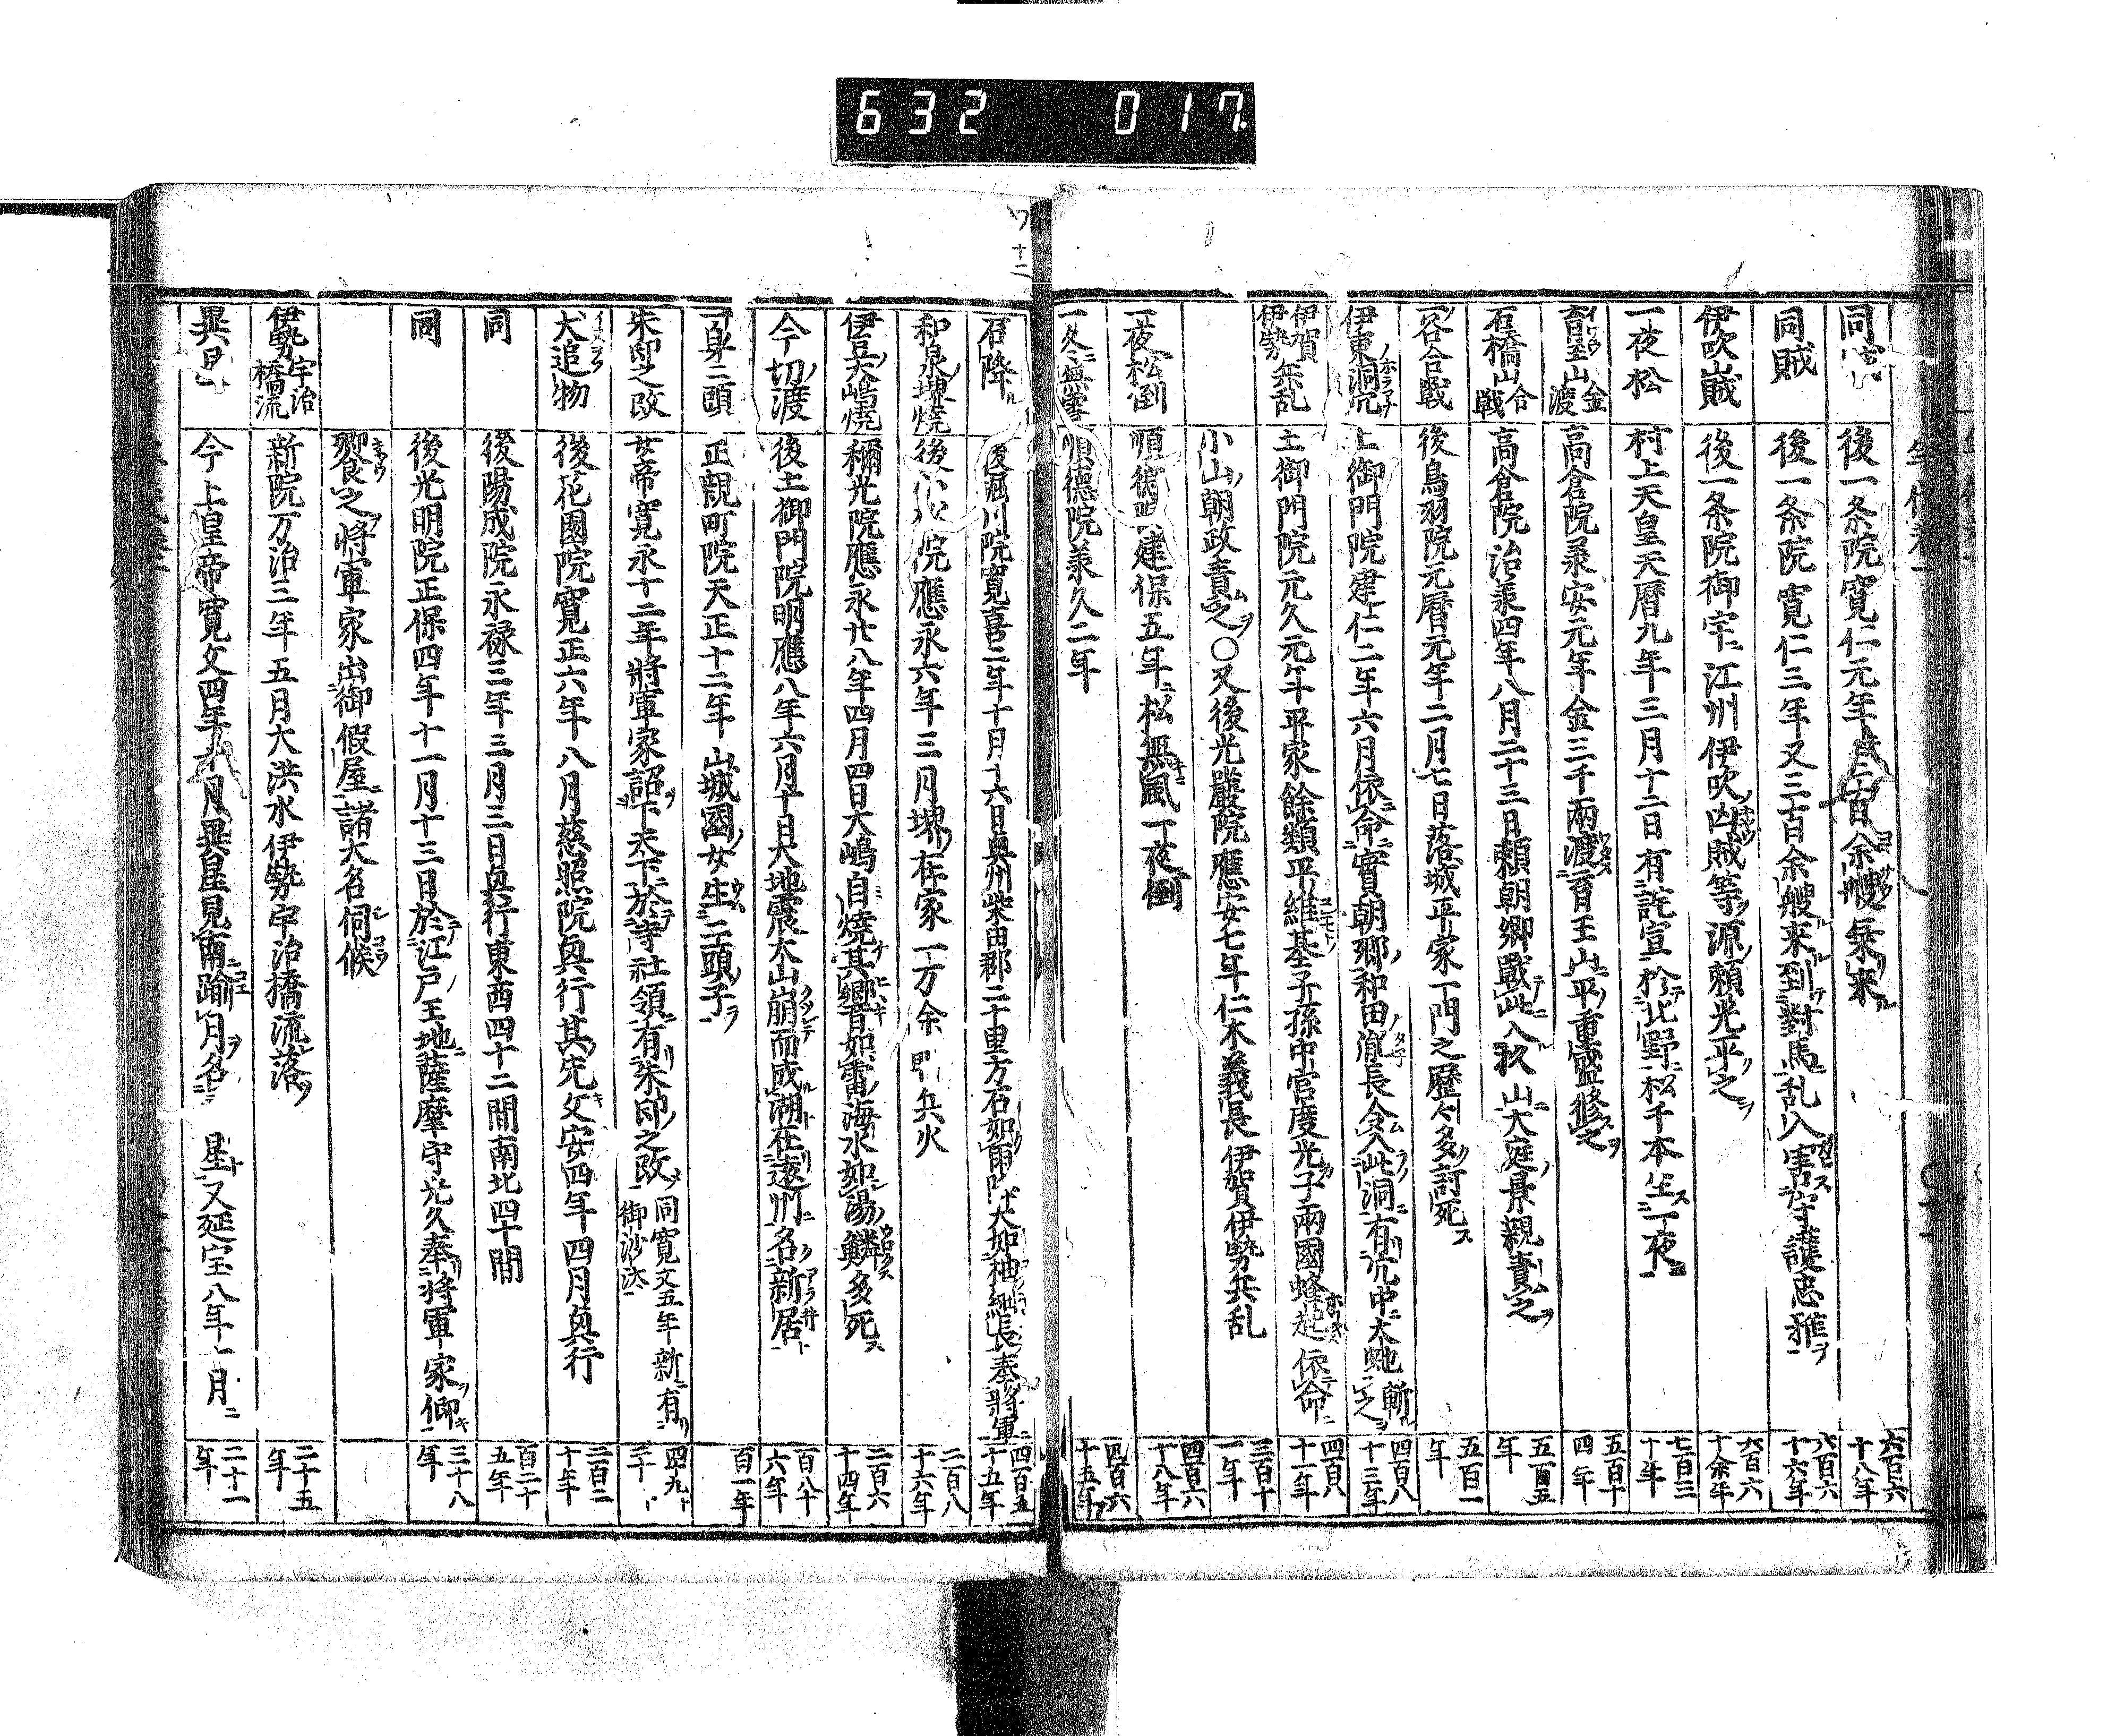 632 017
後一条院寛仁元年 百余艘乗来 六百六十八年
同賊 後一条院寛仁三年又三百余艘来到對馬乱入害守護忠雅 六百六十六年
伊吹山賊 後一条院御宇江州伊吹凶賊等源頼光平之 六百六十余年
一夜松 村上天皇天暦九年三月十二日有託宣於北野松千本生一夜 七百三十年
育王山金渡 高倉院承安元年金三千兩渡育王山平重盛修之 五百十四年
石橋山合戰 高倉院治承四年八月二十三日頼朝卿戰此入杦山大庭景親責之 五百五年
一谷合戰 後鳥羽院元暦元年二月七日落城平家一門之歴々多討死 五百一年
伊東洞穴 土御門院建仁二年六月依命實朝郷和田胤長令入此洞有穴中大虵斬之 四百八十三年
伊賀伊勢兵乱 土御門院元久元年平家餘類平維基子孫中宮度光子兩國蜂起依命 四百八十一年
小山朝政責之〇又後光嚴院應安七年仁木義長伊賀伊勢兵乱 三百十一年
一夜松倒 順徳院建保五年松無風一夜倒 四百六十八年
一冬無雪 順徳院承久二年 四百六十五年
十二
石降 後堀川院寛喜二年十月十六日奥州柴田郡二十里方石如雨降大如柚細長奉將軍 四百五十五年
和泉堺焼 後小松院應永六年三月堺在家一万余 兵火 二百八十六年
伊豆大嶋焼 稱光院應永廿八年四月四日大嶋自焼其響如雷海水如湯鱗多死 二百六十四年
今切渡 後土御門院明應八年六月十日大地震大山崩而成湖在遠州名新居 百八十六年
一身二頭 正親町院天正十二年山城國女生二頭子 百一年
朱印之改 女帝寛永十二年將軍家詔下天下於寺社領有朱印之改 同寛文五年新有御沙汰
犬追物 後花園院寛正六年八月慈照院興行其先文安四年四月興行 二百二十年
同 後陽成院永禄三年三月三日興行東西四十二間南北四十間 百二十五年
同 後光明院正保四年十一月十三日於江戸王地薩摩守光久奉將軍家仰 三十八年
饗之將軍家出御假屋諸大名伺候
伊勢宇治橋流 新院万治三年五月大洪水伊勢宇治橋流落 二十五年
異星 今上皇帝寛文四年十月異星見南踰月名 星又延宝八年十一月 二十一年